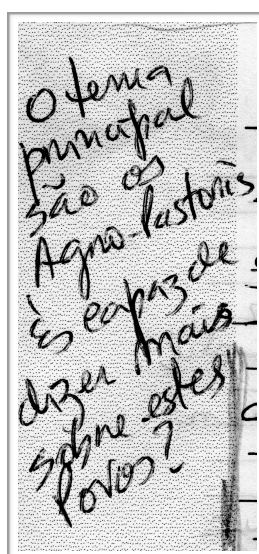 O tema
principal
são os
Agro-Pastoris,
és capaz de
dizer mais
sobre estes
Povos?